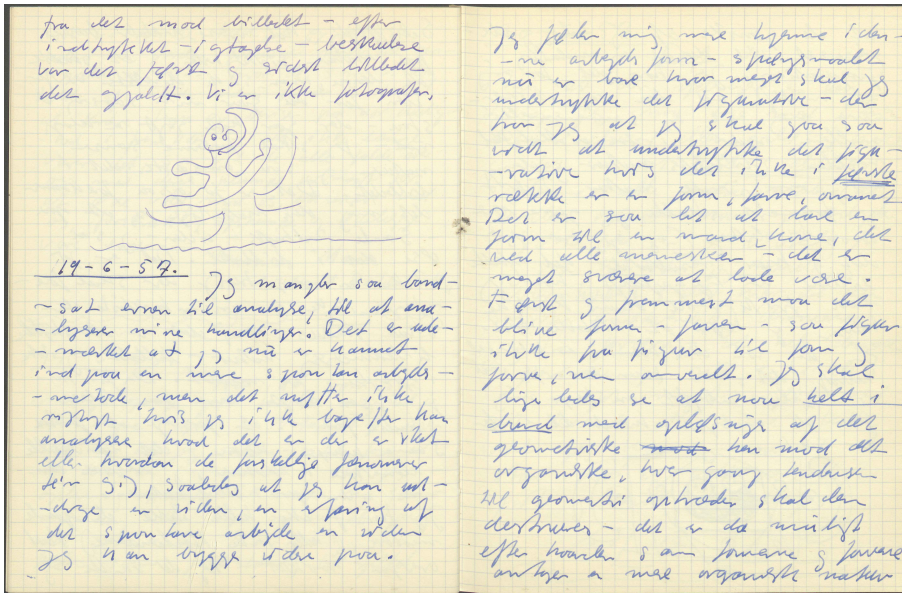 fra det mod billedet – efter
indtrykket – igtagelse – beskuelse
var det først og sidst billedet
det gjaldt. Vi er ikke fotografer,
19-6-57.
Jeg mangler saa band-
-sat evnen til analyse, til at ana-
-lysere mine handlinger. Det er ude-
-mærket at jeg nu er kommet
ind paa en mere spontan arbejds-
-metode, men det nytter ikke
rigtigt hvis jeg ikke bagefter kan
analysere hvad det er der er sket
eller hvordan de forskellige fænomener
ter sig, saaledes at jeg kan ud-
-drage en viden, en erfaring af
det spontane arbejde en viden
jeg kan bygge videre paa.
Jeg føler mig mere hjemme i den-
-ne arbejds form – spørgsmaalet
nu er bare hvor meget skal jeg
undertrykke det figurative – der
tror jeg at jeg skal gaa saa
vidt at undertrykke det figu-
-rative hvis det ikke i første
række er en form, farve,
Det er saa let at lave en
form til en mand, kone, det
ved alle mennesker – det er
meget sværere at lade være.
Først og fremmest maa det
blive form – farven – saa figur
ikke fra figur til form og
farve, men omvendt. Jeg skal
ligeledes se at naa helt i
bund med opløsningen af det
geometriske mod hen mod det
organiske, hver gang tendensen
til geometri optræder skal den
destrueres – det er da muligt
efter haanden som formene og farverne
antager en mere organisk natur